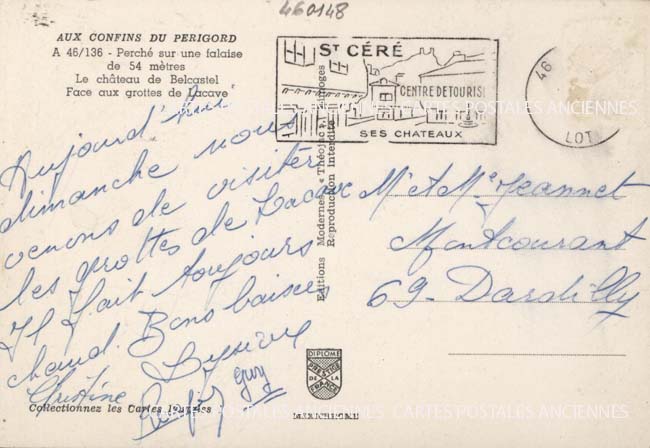 460148
AUX CONFINS DU PERIGORD
A 46/136 - Perché sur une falaise
de 54 mètres
Le château de Belcastel
Face aux grottes de Lacave
ST CÉRÉ
CENTRE DE TOURIS
SES CHATEAUX
46
LOT
CARTES POSTALES ANCIENNES CARTES POSTALES ANCIENNES
Aujourd'hui
dimanche nous
venons de visiter
les grottes de Lacave
Il fait toujours
chaud. Bons baisers
Christine
Guy
Editions Modernes « Théojac », Limoges
Reproduction Interdite
Mr et Me Jeannet
Montcourant
69 - Dardilly
DIPLOME
PRESTIGE
DE LA
FRANCE
Collectionnez les Cartes
CARTES POSTALES ANCIENNES